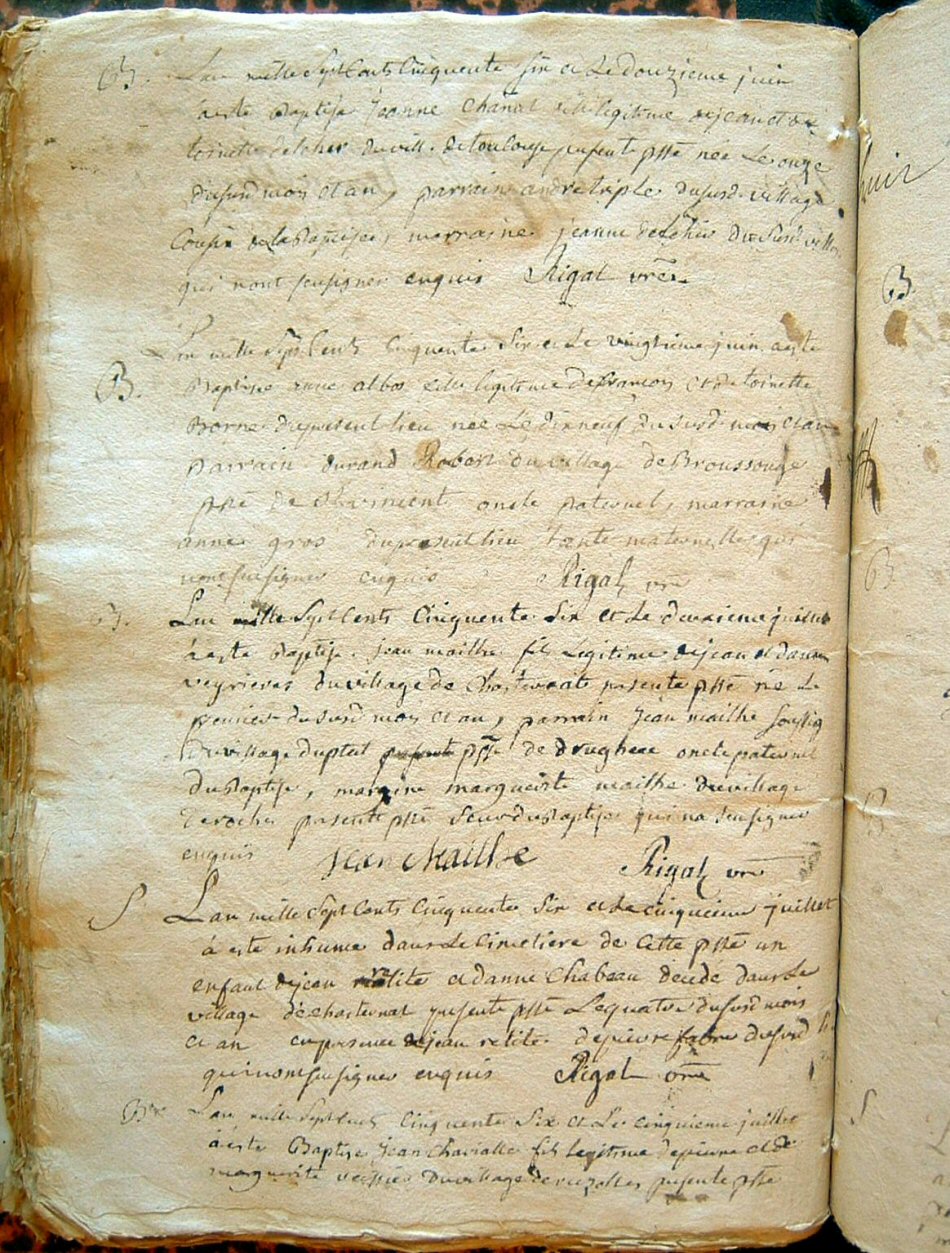 B. Lan mille Sept Cents Cinquente Six et Le douzieme juin
à esté Baptisé jeanne Chanal fille legitime dejean et de
toinette delcher du vill. de toulouse presente psse née Le onze
dususd mois et an, parrain andre triple dususd village
Cousin de la Baptisée, marraine jeanne delcher du Susd village
qui nont sçu signer enquis Rigal vre
Lan mille Sept Cents Cinquente Six et Le vingtieme juin à esté
B. Baptisée anne albos fille legitime de francois et de toinette
Borne dupresent lieu née Le dixneuf du susd mois et an
parrain durand Robert du village de Broussouge
psse de St vincent oncle paternel, marraine
anne gros dupresent lieu tante maternelle qui
nont sçu signer enquis Rigal vre
B. Lan mille Sept Cents Cinquente Six et Le deuxieme juillet
à esté Baptisé jean mailhe fils Legitime dejean et danne
veyrieres du village de Chasternat presente psse né Le
premier du susd mois et an, parrain jean mailhe soussig
du village duptat psse de drugheac oncle paternel
du Baptisé, marraine marguerite mailhe du village
de roche presente psse Seur du Baptisé qui na sçu signer
enquis jean Mailhe Rigal vre
S. Lan mille Sept Cents Cinquente Six et Le cinquieme juillet
à esté inhumé dans Le Cimetiere de Cette psse un
enfant dejean retité et danne Chabeau decedé dans Le
village de chasternat presente psse Le quatre du susd mois
et an en presence dejean retité de pierre fabre du susd
qui nont sçu signer enquis Rigal vre
B. Lan mille Sept Cents Cinquente Six et Le cinquieme juillet
à esté Baptisé jean Chariolle fils legitime de pierre et de
marguerite vessier du village de presente psse
B.
B
B
S